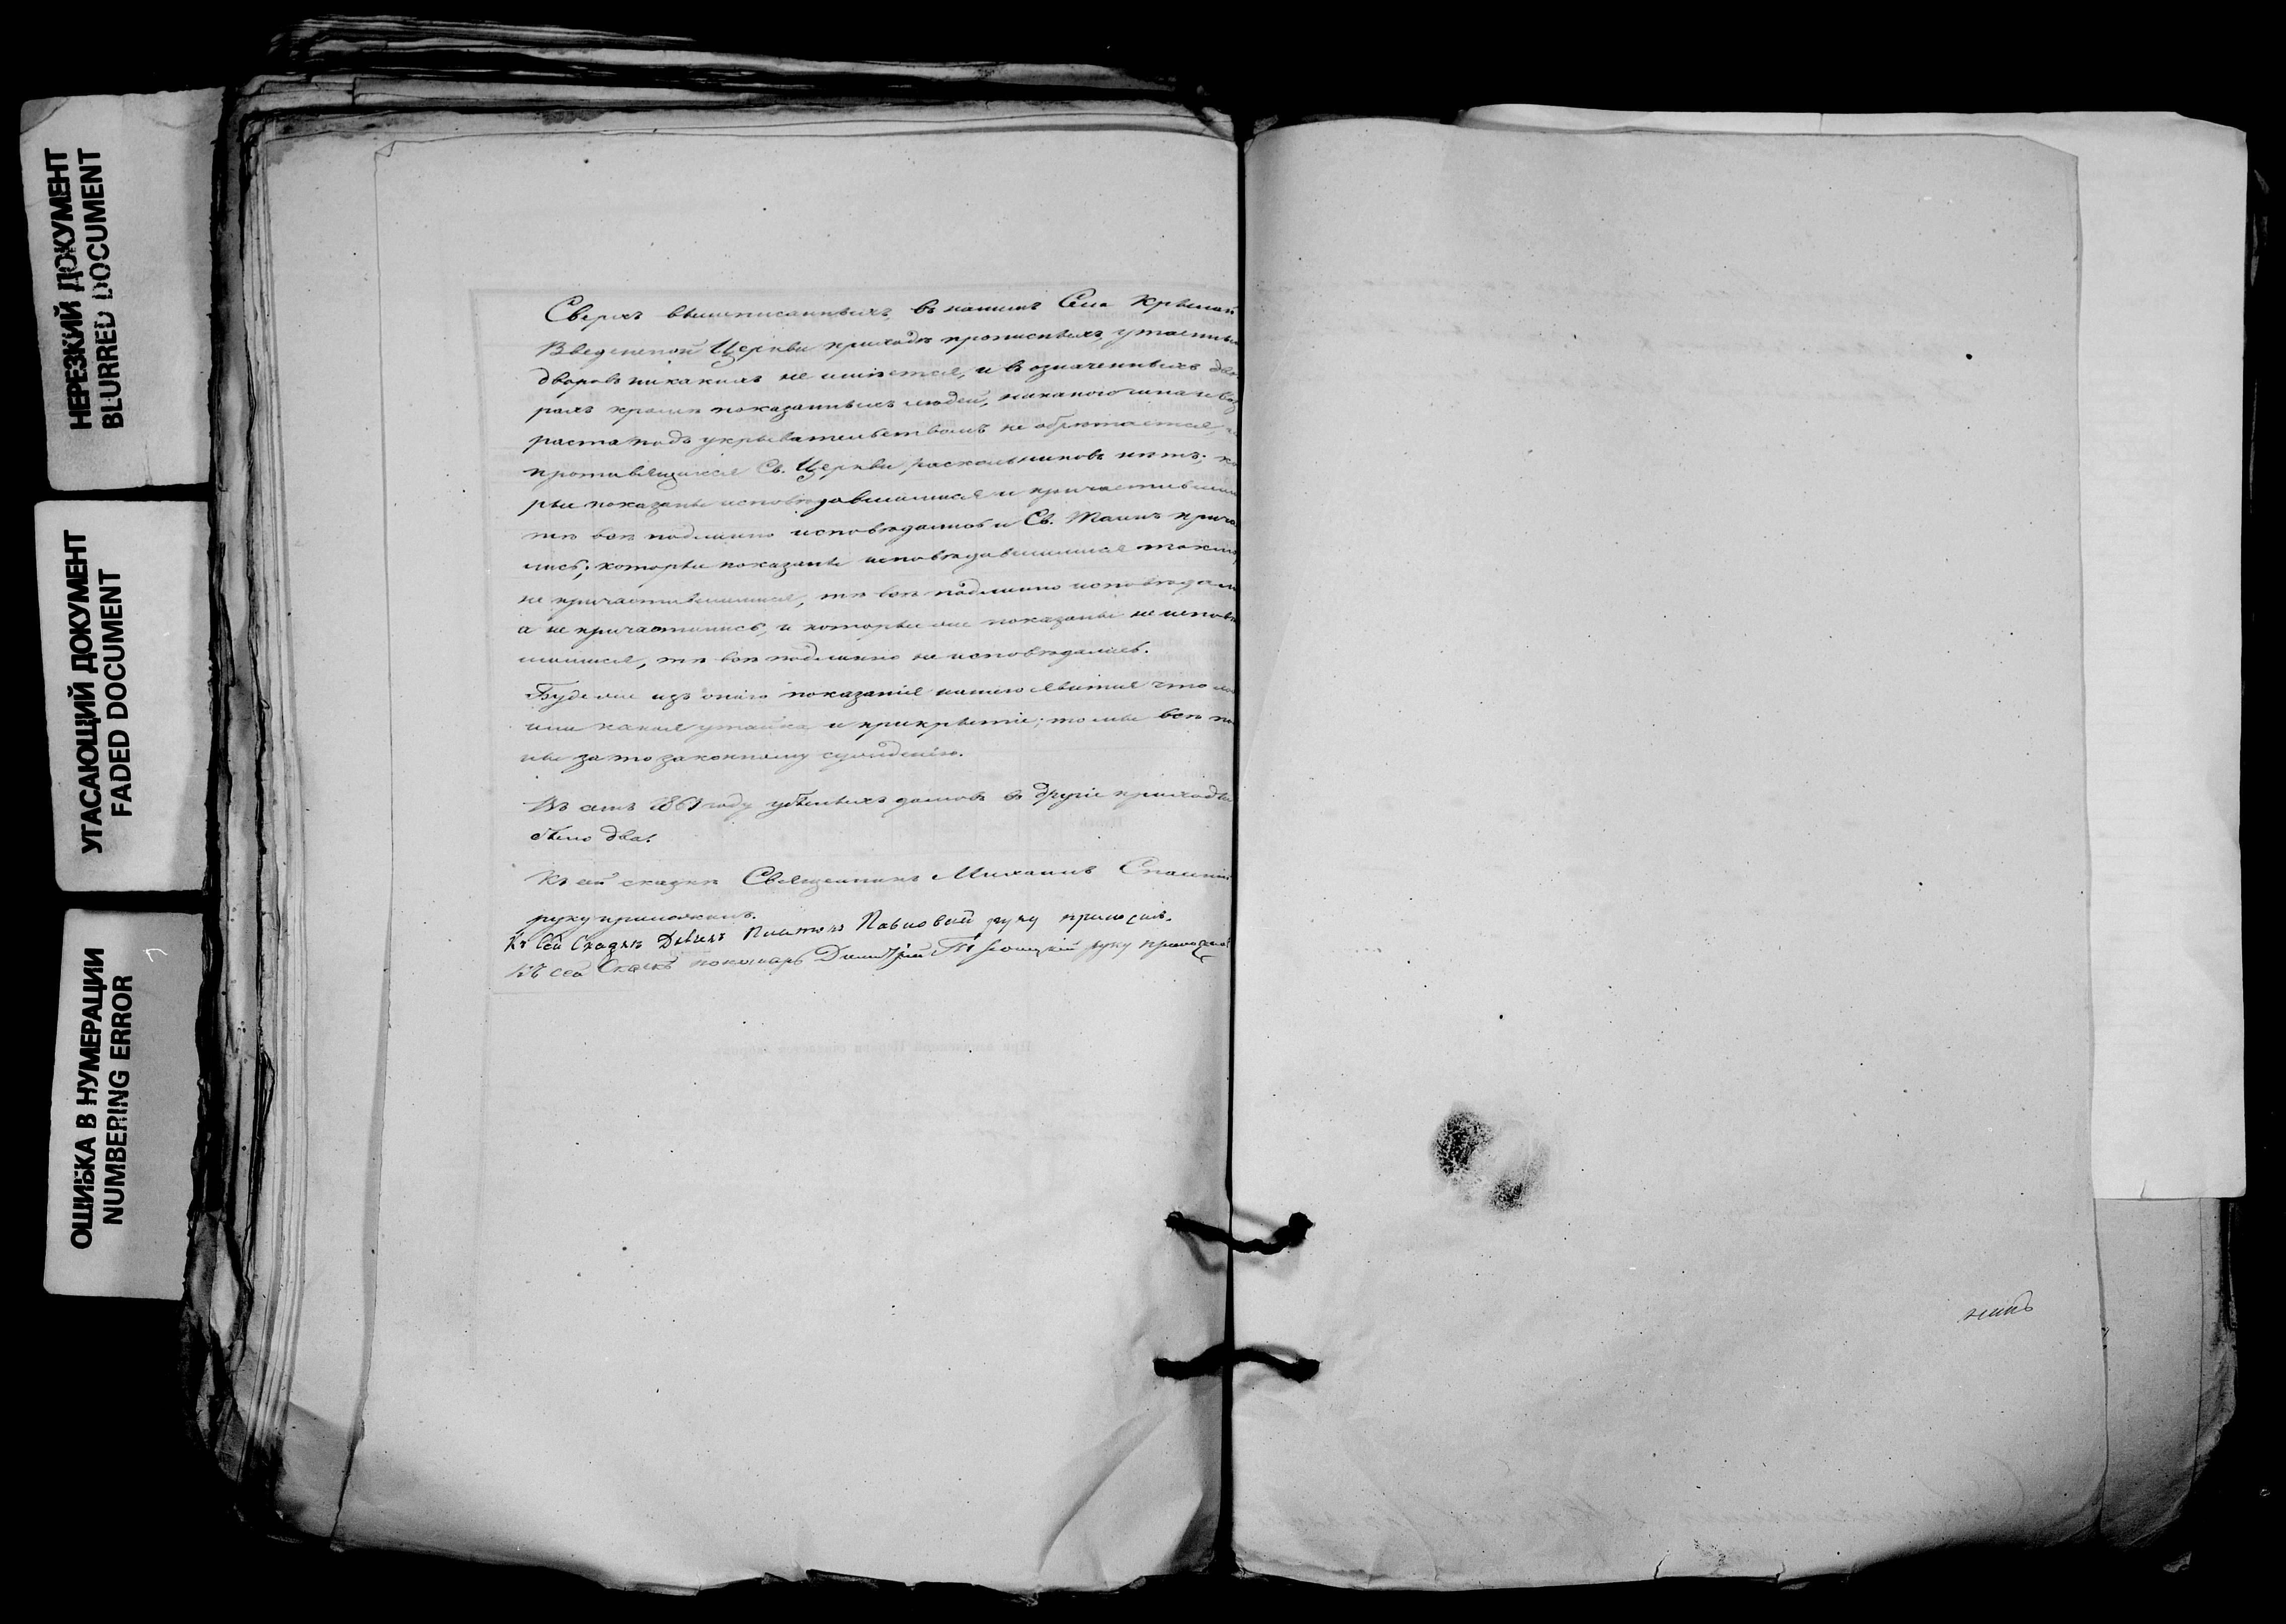 НЕРЕЗКИЙ ДОКУМЕНТ
BLURRED DOCUMENT
УГАСАЮЩИЙ ДОКУМЕНТ
FADED DOCUMENT
ОШИБКА В НУМЕРАЦИИ
NUMBERING ERROR
Сверхъ вышеписанныхъ, въ нашемъ Села
Введенской Церкви приходѣ прописныхъ, утаенны
дворовъ никакихъ не имѣется, и въ означенныхъ дво
рахъ кромѣ показанныхъ людей, никакого чина и воз
раста подъ укрывательствомъ не обрѣтается,
противящихся Св. Церкви раскольниковъ нѣтъ; ко
рые показаны исповѣдавшимися и причастивши
тѣ всѣ подлинно исповѣдались и Св. Таинъ прича
лись; которые показаны исповѣдавшимися токмо,
не причастившимися, тѣ всѣ подлинно исповѣдали
а не причастились, и которые же показаны не исповѣ
шимися, тѣ всѣ подлинно не исповѣдались.
Буде же изъ онаго показанія нашего явится что ло
или какая утайка и прикрытіе; то мы всѣ по
ны за то законному сужденію.
Въ семъ 1861 году убылыхъ домовъ въ другіе приходы
было два.
Къ сей сказкѣ Священникъ Михаилъ
руку приложилъ.
Къ сей Сказкѣ Дьячекъ Платонъ Павловъ руку приложилъ.
Къ сей Сказкѣ пономарь Димитрій руку приложилъ
никъ